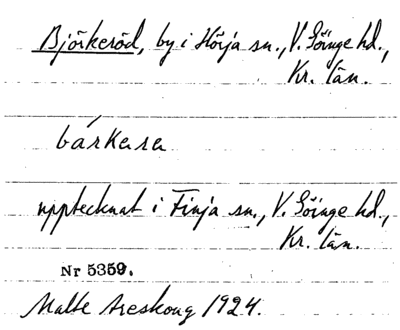 Björkeröd, by i Hörja sn., V. Göinge hd.,
Kr. län.
bárkara
upptecknat i Finja sn., V. Göinge hd.,
Kr. län.
Nr 5359.
Malte Areskoug 1924.